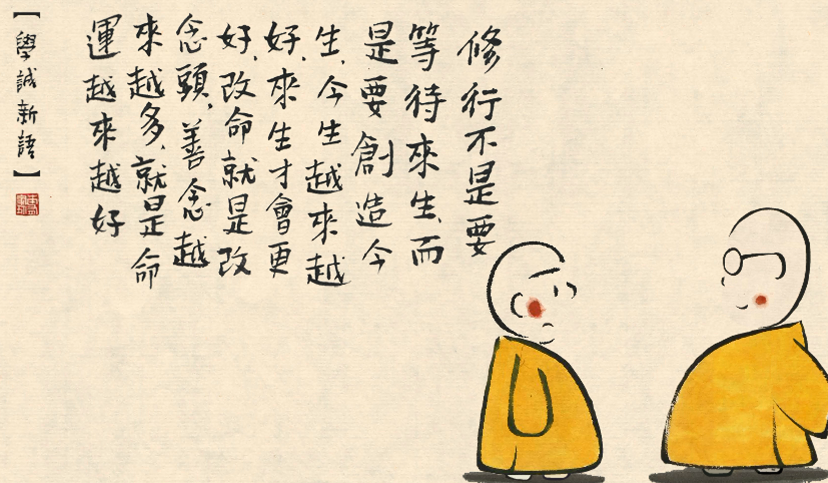 修行不是要
等待來生，而
是要創造今
生，今生越來越
好，來生才會更
好，改命就是改
念頭，善念越
來越多，就是命
運越來越好
【學誠新語】